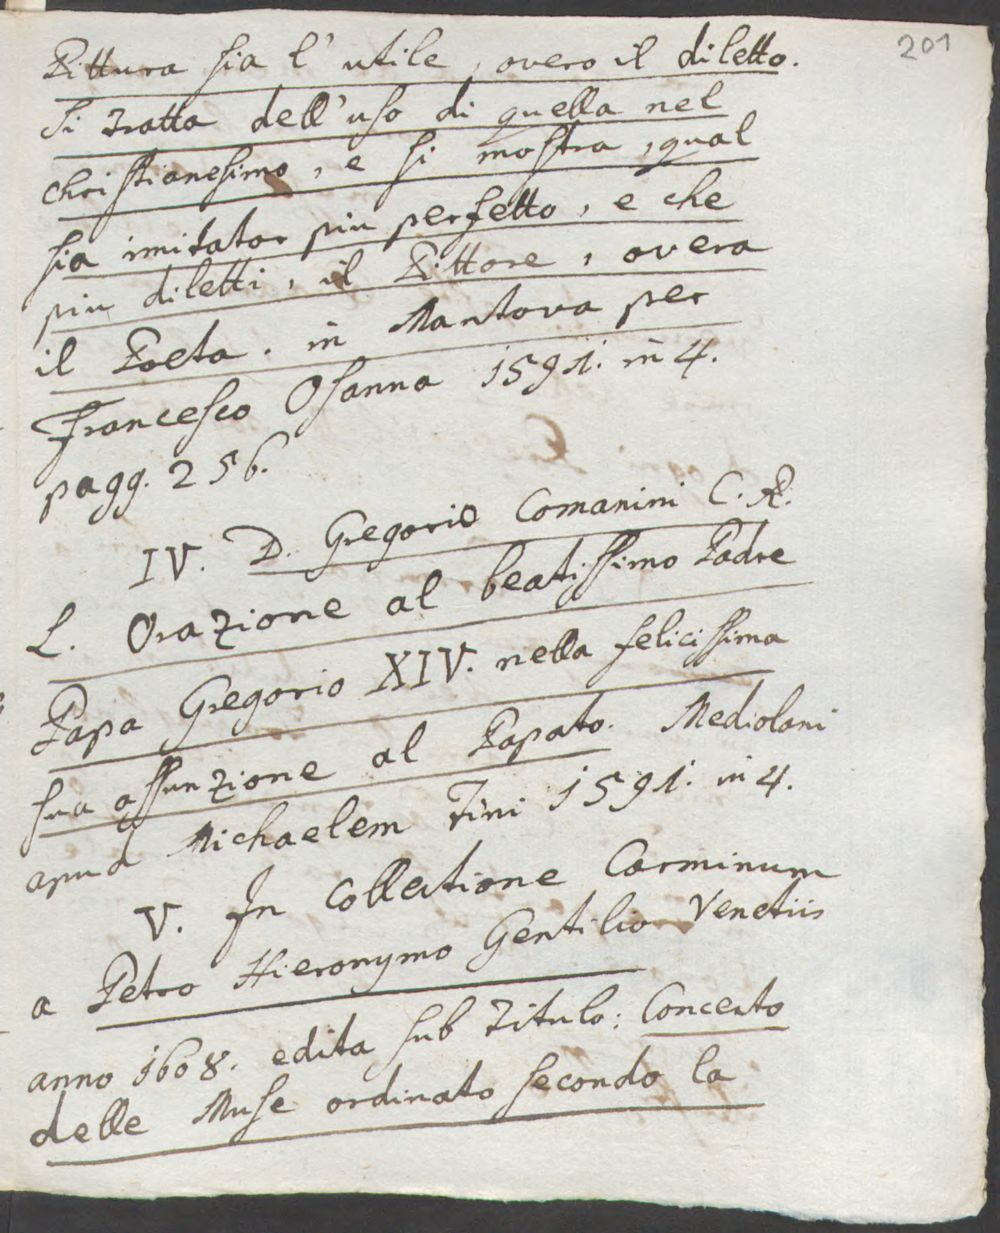 201
Pittura sia l' utile, overo il diletto.
Si tratta dell' uso di quella nel
christianesimo, e si mostra, qual
sia imitator piu perfetto, e che
piu diletti, il Pittore, overa
il Poeta. in Mantova per
Francesco Osanna 1591. in 4.
pagg. 256.
IV. D. Gregorio Comanini C. R.
L. Orazione al beatissimo Padre
Papa Gregorio XIV. nella felicissima
sua assunzione al Papato. Mediolani
apud Michaelem Tini 1591. in 4.
V. In Collectione Carminum
a Petro Hieronymo Gentilio Venetiis
anno 1608. edita sub titulo: Concerto
delle Muse ordinato secondo la